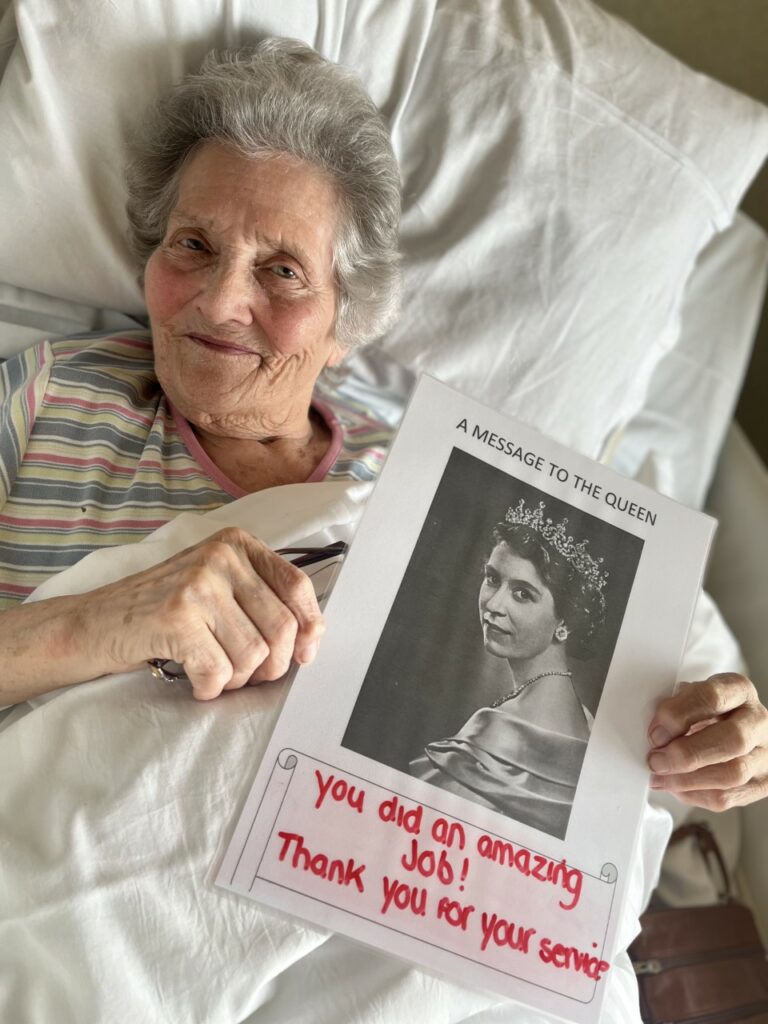 A MESSAGE TO THE QUEEN
You did an amazing
Job!
Thank you for your service